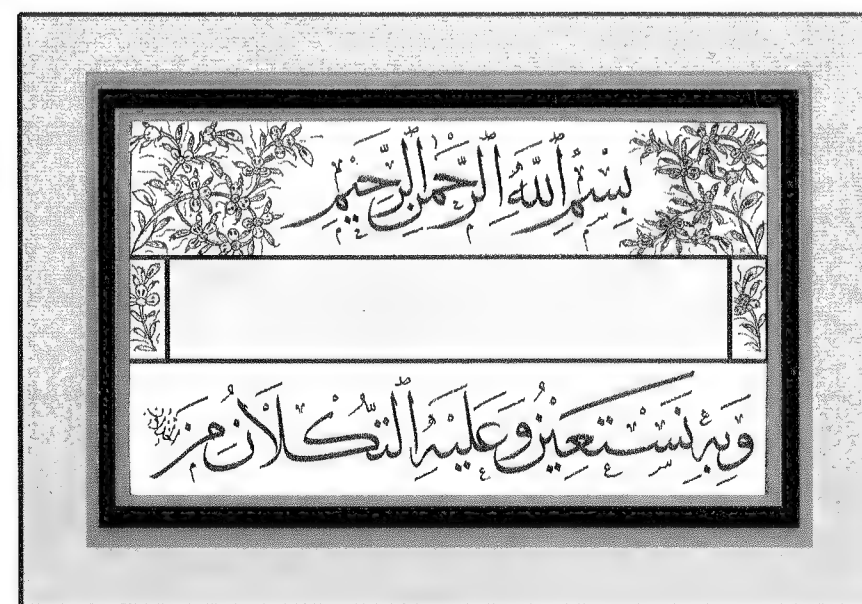 بِسْمِ اللَّهِ الرَّحْمَنِ الرَّحِيمِ
وَبِهِ نَسْتَعِينُ وَعَلَيْهِ التُّكْلَانُ مِنَ